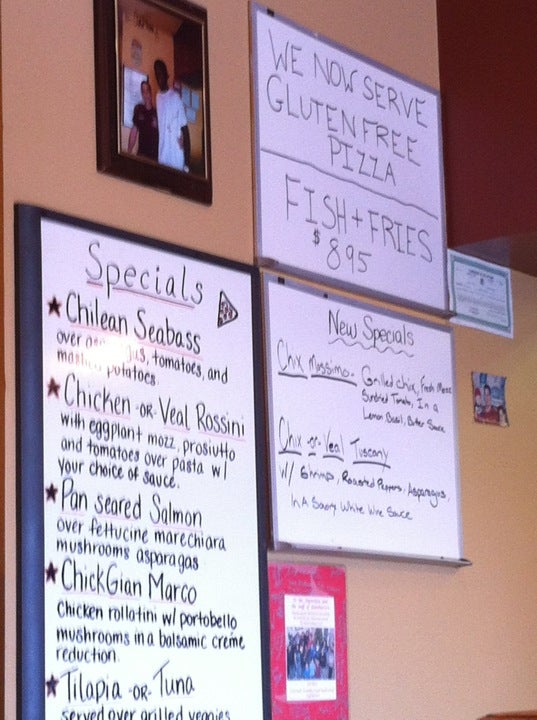 WE NOW SERVE
GLUTEN FREE
PIZZA
FISH + FRIES
$ 8.95
Specials
★ Chilean Seabass
over tomatoes, and
potatoes
★ Chicken -OR- Veal Rossini
with eggplant mozz, prosiutto
and tomatoes over pasta w/
your choice of sauce.
★ Pan seared Salmon
over fettucine marechiara
mushrooms asparagas
★ ChickGian Marco
chicken rollotini w/ portobello
mushrooms in a balsamic creme
reduction.
★ Tilapia -OR- Tuna
served over grilled veggies
New Specials
Chix Massimo - Grilled chix, Fresh Mozz
Sundried Tomato, In a
Lemon Basil, Butter Sauce
Chix -or- Veal Tuscany
w/ Shrimps, Roasted Peppers, Asparagus,
In A Savory White Wine Sauce